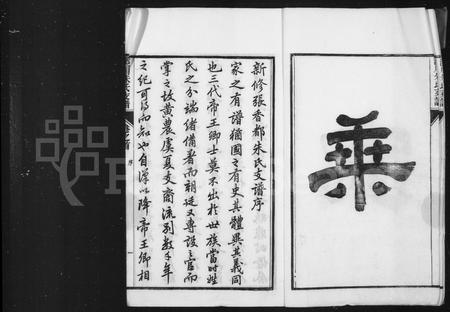 乘
新修張香都朱氏支譜序
家之有譜猶國之有史其體異其義同
也三代帝王卿士莫不出於世族當時姓
氏之分端緒備著而朝廷又專設之官而
掌之故黃農虞夏支商流別數千年
之紀可得而知也自漢以降帝王卿相
序